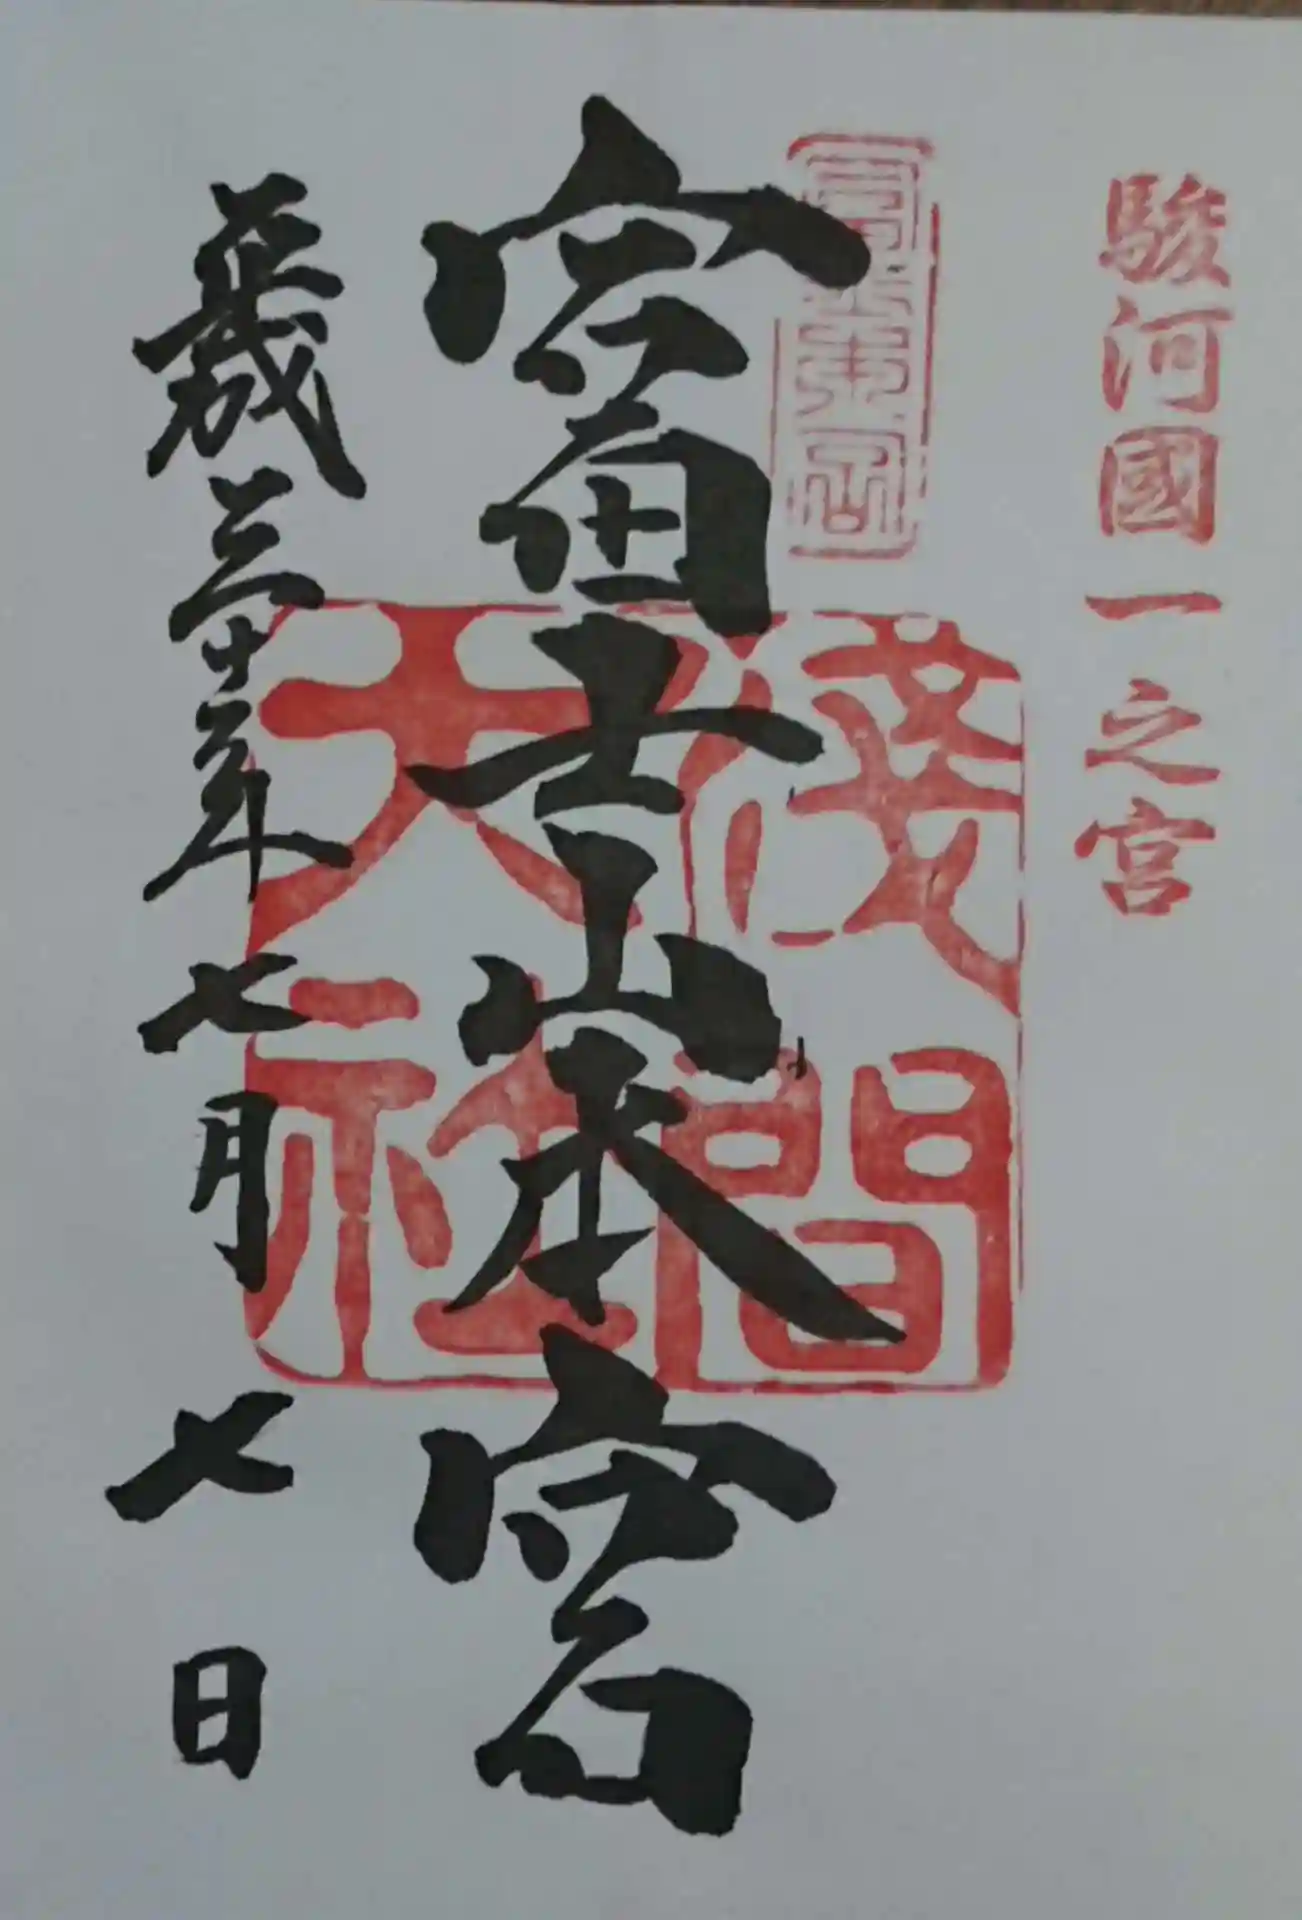 駿河國一之宮
富士山本宮
淺間大社
平成三十年七月七日